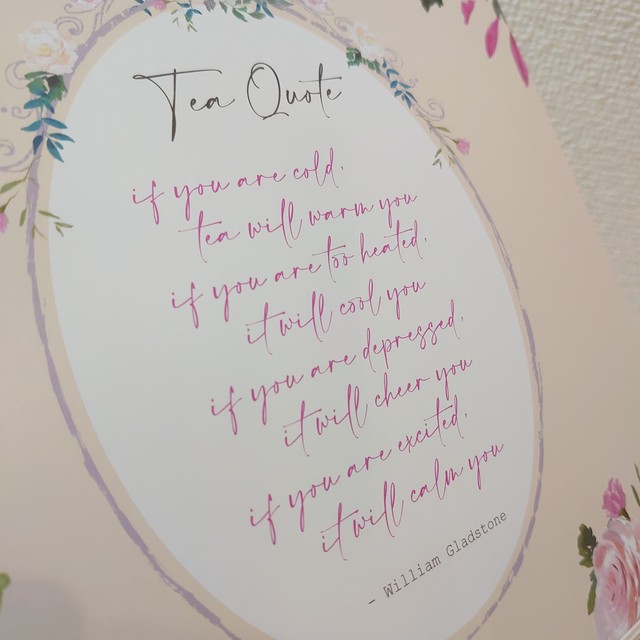 Tea Quote
if you are cold,
tea will warm you
if you are too heated,
it will cool you
if you are depressed,
it will cheer you
if you are excited,
it will calm you
– William Gladstone